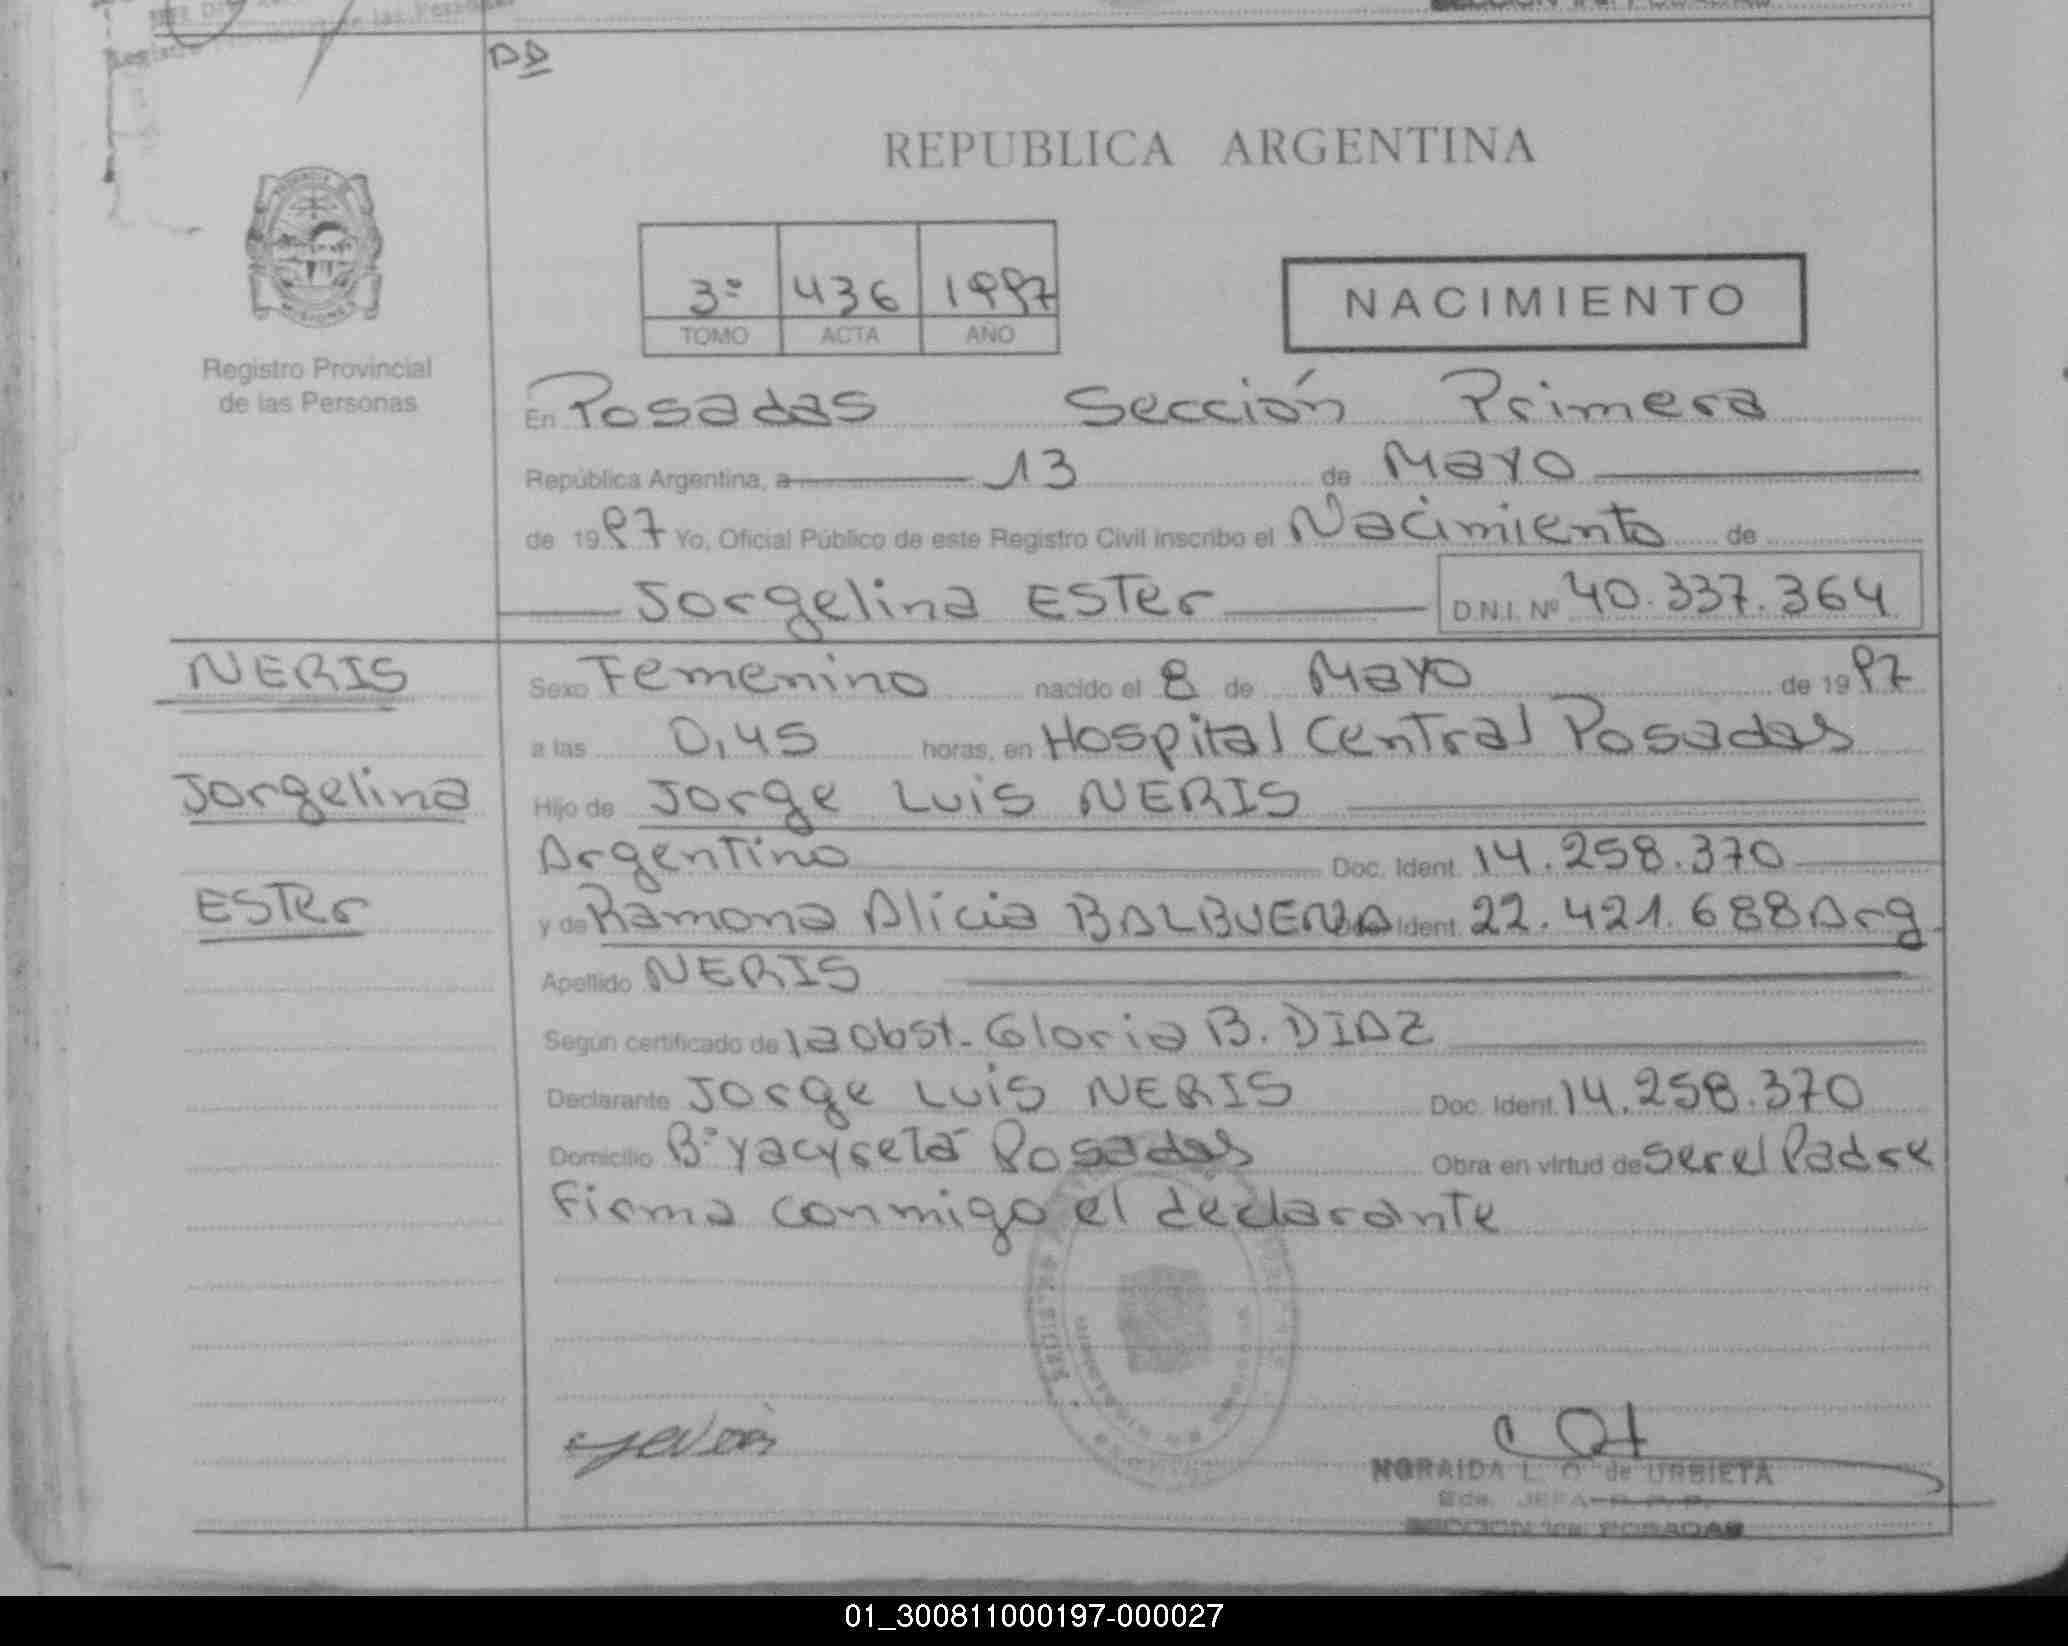 DD
REPUBLICA ARGENTINA
3º 436 1997
TOMO ACTA AÑO
NACIMIENTO
Registro Provincial
de las Personas
En Posadas Sección Primera
República Argentina, a 13 de Mayo
de 1997 Yo, Oficial Público de este Registro Civil inscribo el Nacimiento de
Jorgelina Ester D.N.I. Nº 40.337.364
NERIS
Jorgelina
Ester
Sexo Femenino nacido el 8 de Mayo de 1997
a las 0,45 horas, en Hospital Central Posadas
Hijo de Jorge Luis NERIS
Argentino Doc. Ident. 14.258.370
y de Ramona Alicia BALBUENA Ident. 22.421.688 Arg.
Apellido NERIS
Según certificado de la Obst. Gloria B. DIAZ
Declarante Jorge Luis NERIS Doc. Ident. 14.258.370
Domicilio Bº Yacyreta Posadas Obra en virtud de ser el Padre
Firma conmigo el declarante
NORAIDA L. O. de URBIETA
SECCION 1ra. POSADAS
01_300811000197-000027